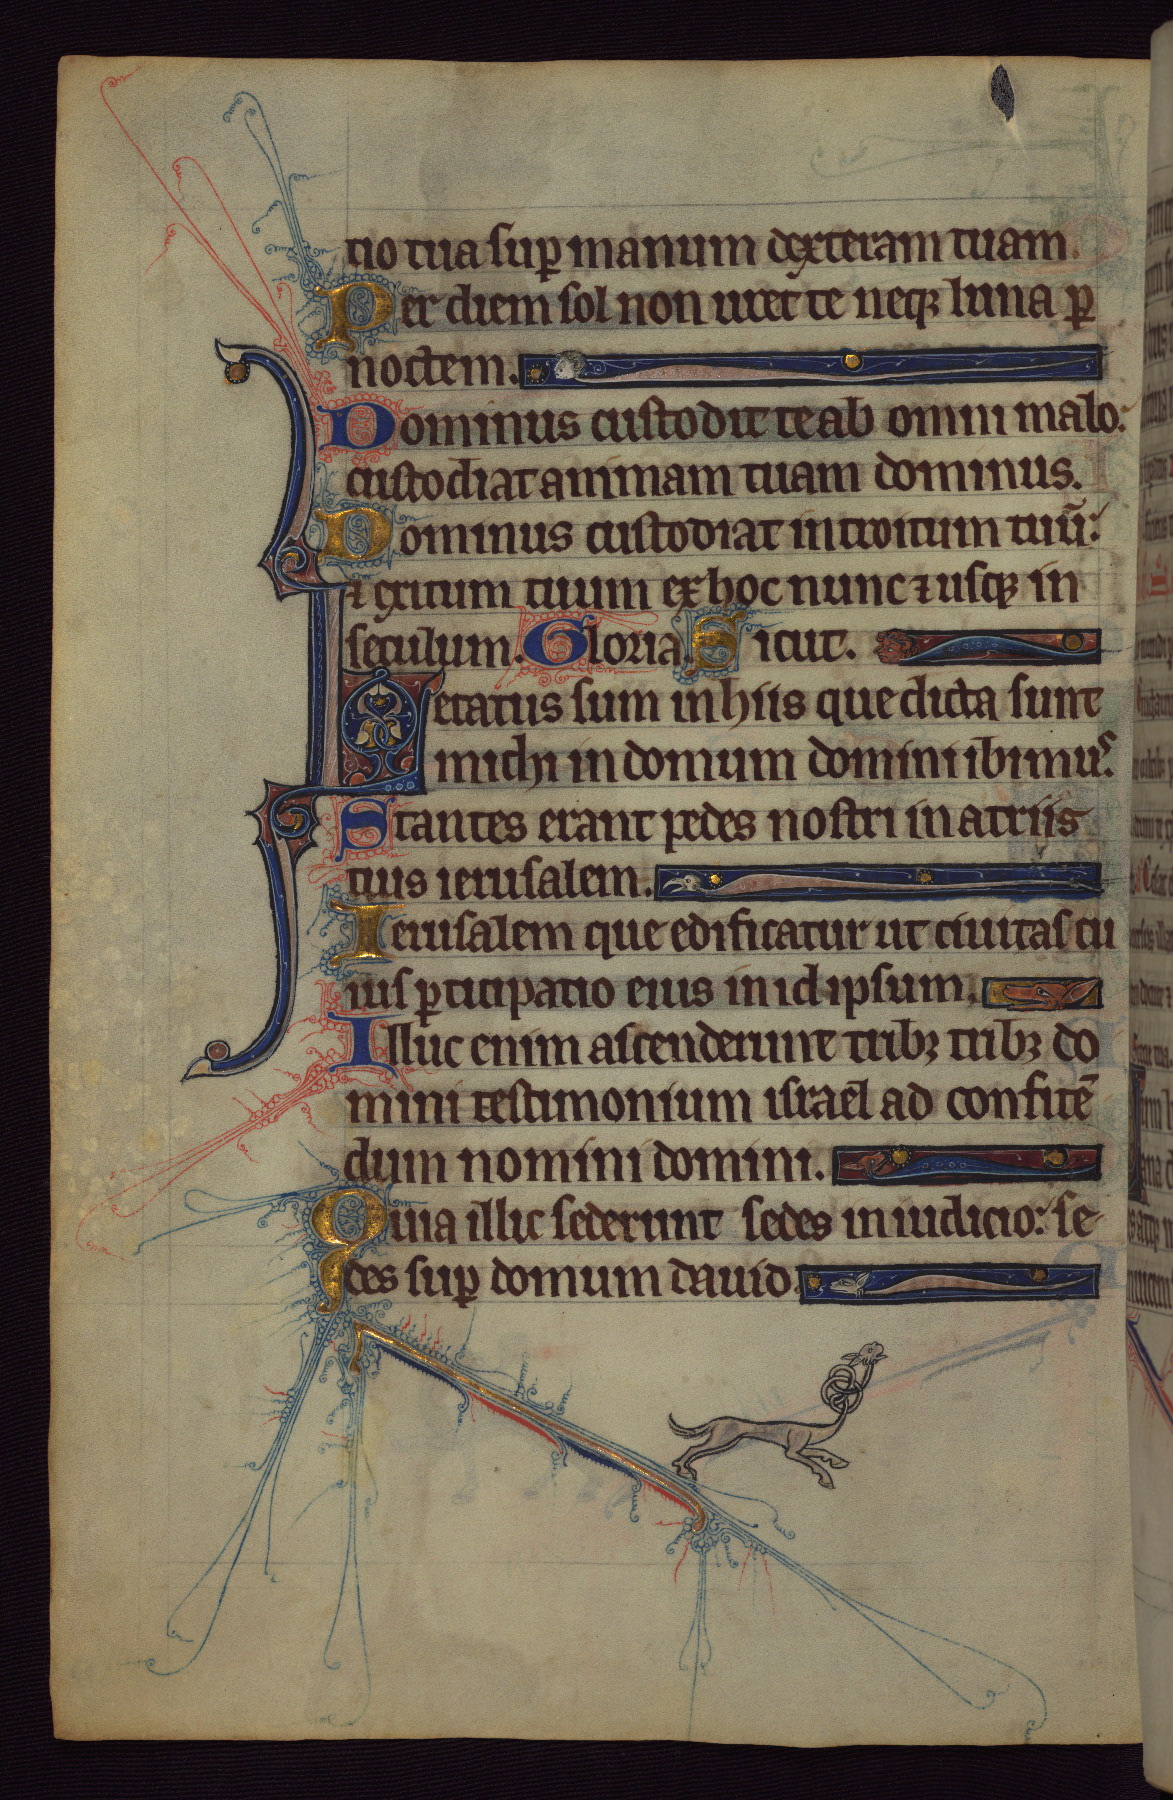 tio tua sup manum dexteram tuam.
Per diem sol non uret te neqꝫ luna ꝑ
noctem.
Dominus custodit te ab omni malo:
custodiat animam tuam dominus.
Dominus custodiat introitum tuū:
⁊ exitum tuum ex hoc nunc ⁊ usqꝫ in
seculum. Gloria. Sicut.
Letatus sum in hiis que dicta sunt
michi in domum domini ibimus.
Stantes erant pedes nostri in atriis
tuis ierusalem.
Ierusalem que edificatur ut ciuitas cu
ius ꝑticipatio eius in id ipsum.
Illuc enim ascenderunt tribꝫ tribꝫ do
mini testimonium israel ad confitē
dum nomini domini.
Quia illic sederunt sedes in iudicio: se
des suꝑ domum dauid.